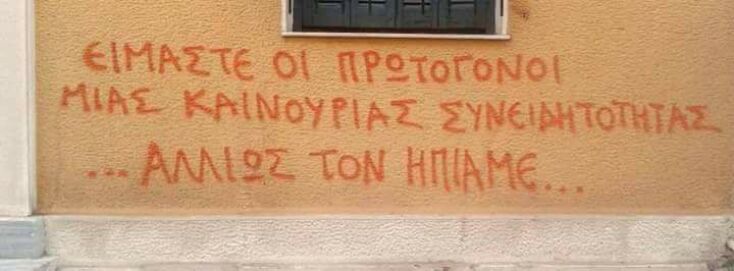 ΕΙΜΑΣΤΕ ΟΙ ΠΡΩΤΟΓΟΝΟΙ
ΜΙΑΣ ΚΑΙΝΟΥΡΙΑΣ ΣΥΝΕΙΔΗΤΟΤΗΤΑΣ
...ΑΛΛΙΩΣ ΤΟΝ ΗΠΙΑΜΕ...